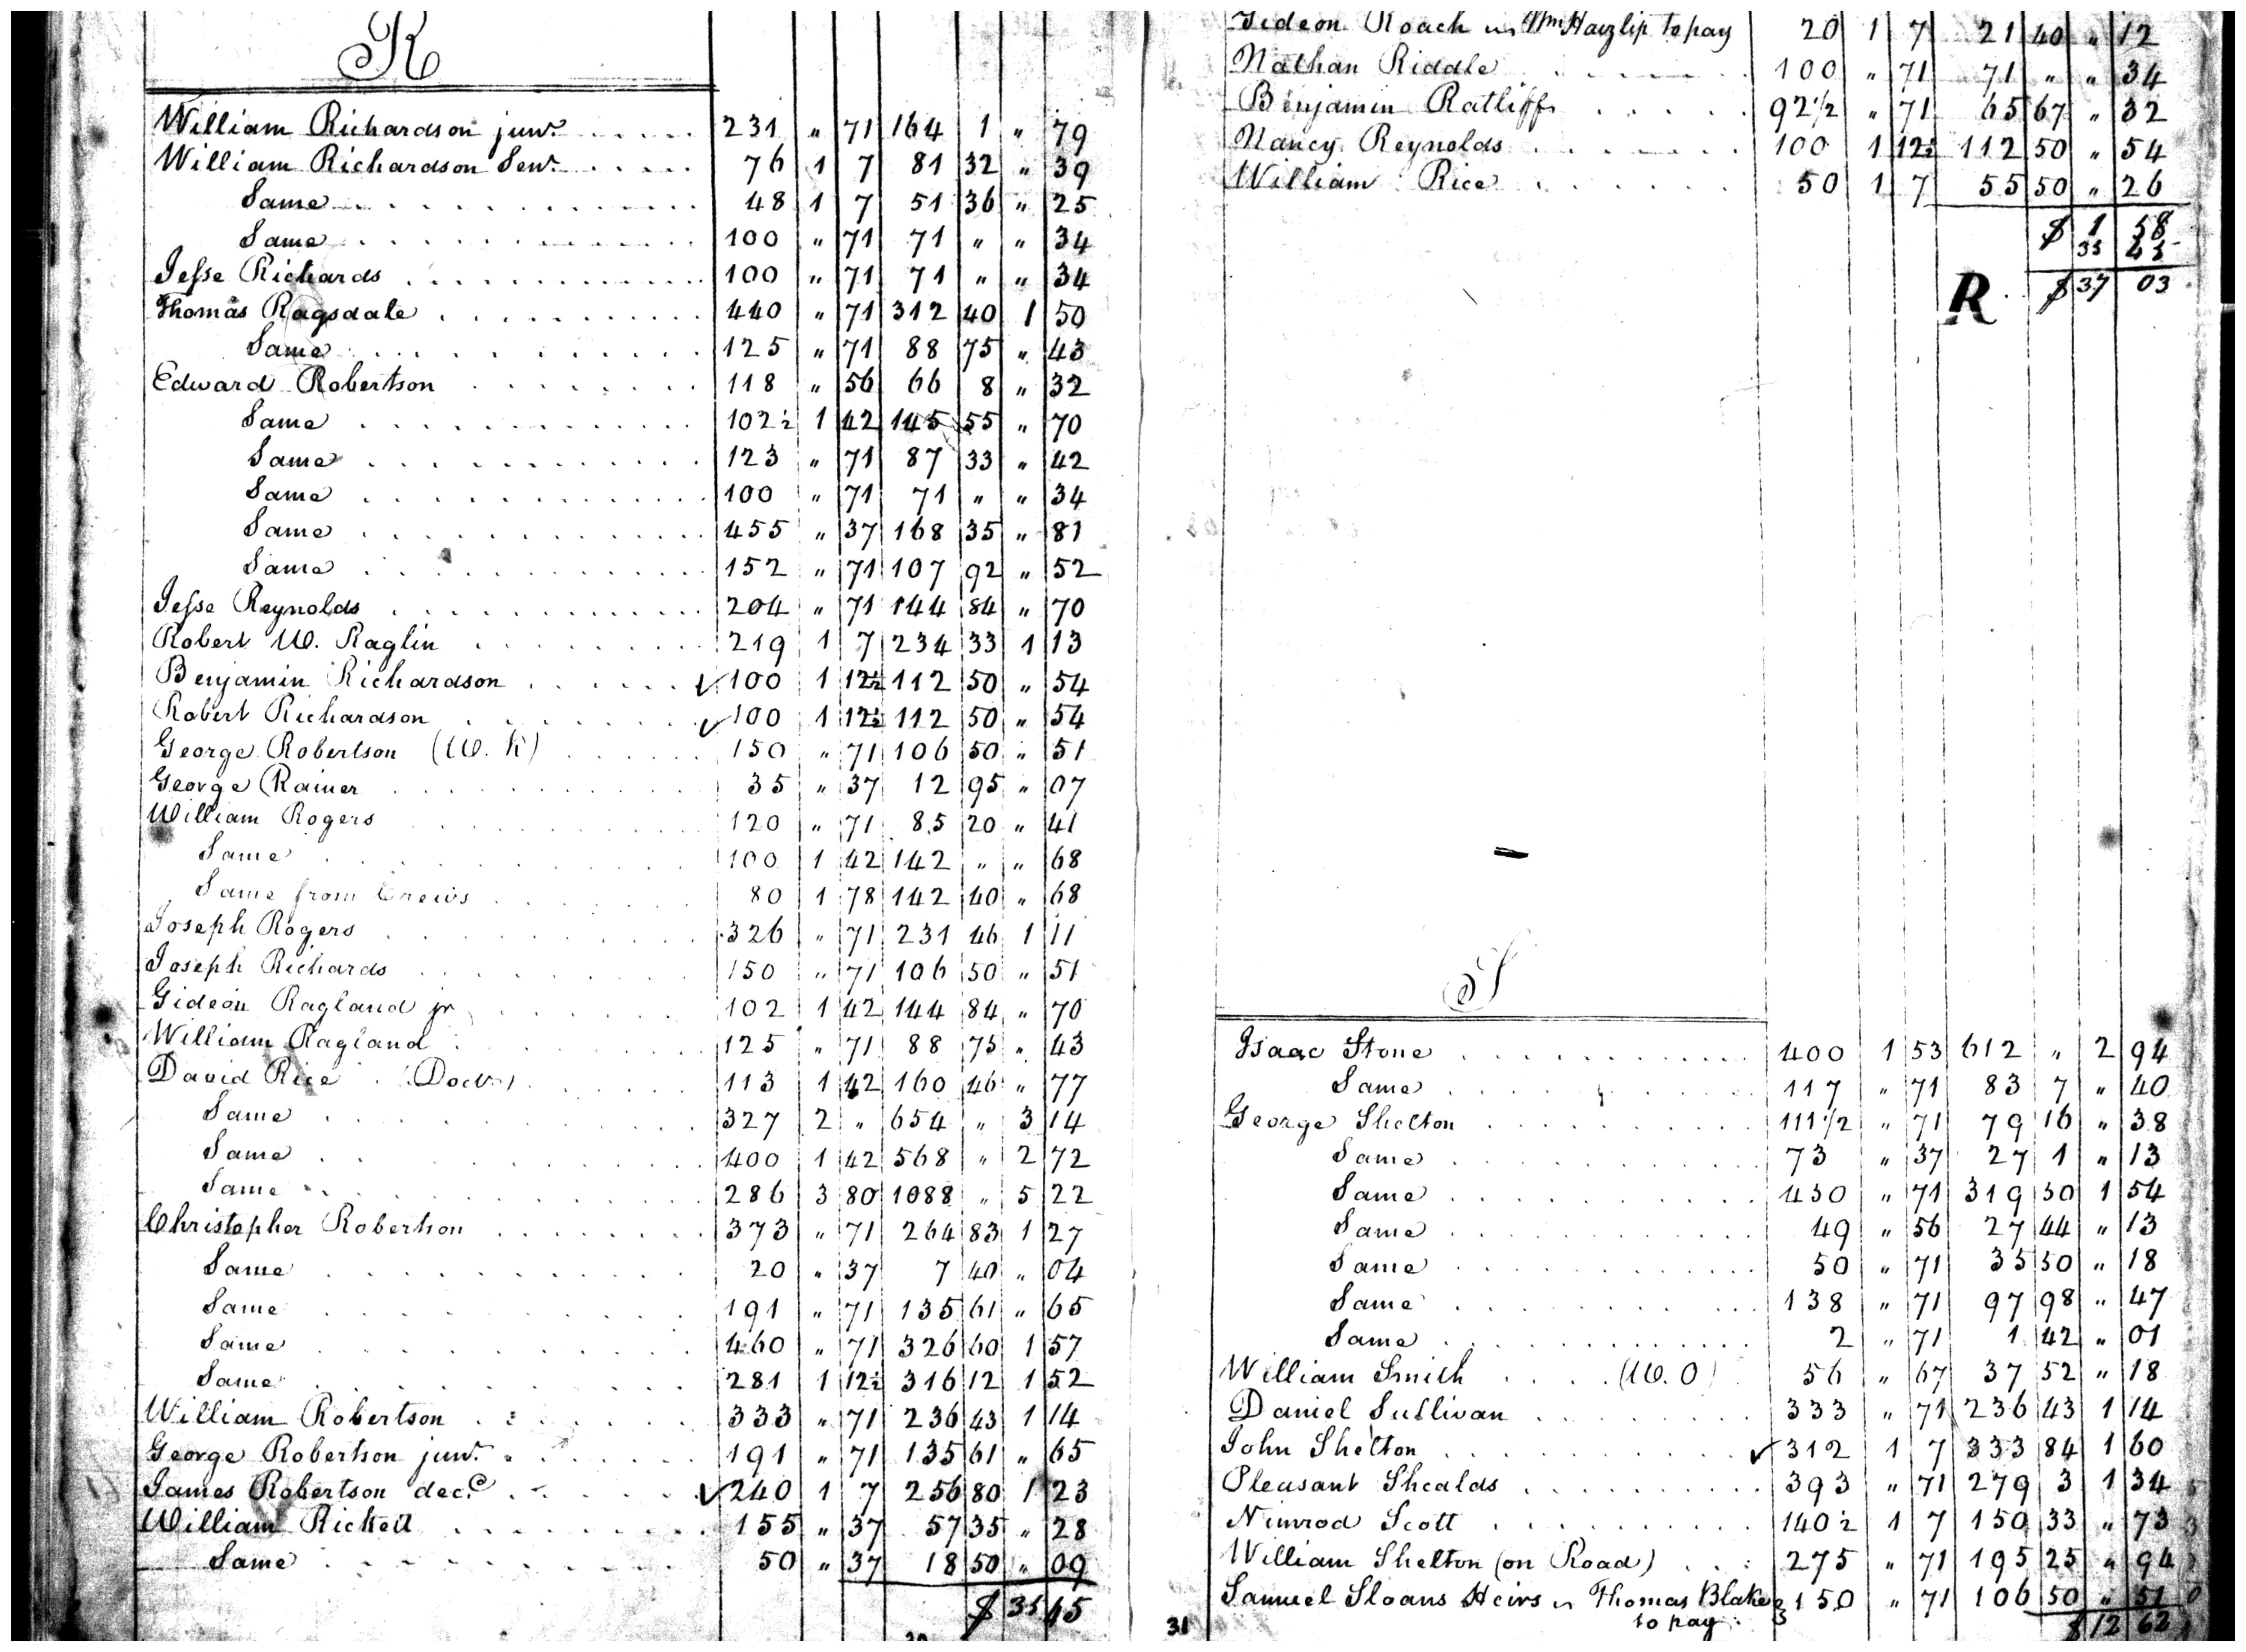 R
William Richardson junr. 231 " 71 164 1 " 79
William Richardson Senr. 76 1 7 81 32 " 39
Same 48 1 7 51 36 " 25
Same 100 " 71 71 " " 34
Jesse Richards 100 " 71 71 " " 34
Thomas Ragsdale 440 " 71 312 40 1 50
Same 125 " 71 88 75 " 43
Edward Robertson 118 " 56 66 8 " 32
Same 102½ 1 42 145 55 " 70
Same 123 " 71 87 33 " 42
Same 100 " 71 71 " " 34
Same 455 " 37 168 35 " 81
Same 152 " 71 107 92 " 52
Jesse Reynolds 204 " 71 144 84 " 70
Robert W. Raglin 219 1 7 234 33 1 13
Benjamin Richardson ✓ 100 1 12½ 112 50 " 54
Robert Richardson ✓ 100 1 12½ 112 50 " 54
George Robertson (W. K) 150 " 71 106 50 " 51
George Rainer 35 " 37 12 95 " 07
William Rogers 120 " 71 85 20 " 41
Same 100 1 42 142 " " 68
Same from Crews 80 1 78 142 40 " 68
Joseph Rogers 326 " 71 231 46 1 11
Joseph Richards 150 " 71 106 50 " 51
Gideon Ragland jr 102 1 42 144 84 " 70
William Ragland 125 " 71 88 75 " 43
David Rice (Doctr) 113 1 42 160 46 " 77
Same 327 2 " 654 " 3 14
Same 400 1 42 568 " 2 72
Same 286 3 80 1088 " 5 22
Christopher Robertson 373 " 71 264 83 1 27
Same 20 " 37 7 40 " 04
Same 191 " 71 135 61 " 65
Same 460 " 71 326 60 1 57
Same 281 1 12½ 316 12 1 52
William Robertson 333 " 71 236 43 1 14
George Robertson junr. 191 " 71 135 61 " 65
James Robertson decd. ✓ 240 1 7 256 80 1 23
William Rickett 155 " 37 57 35 " 28
Same 50 " 37 18 50 " 09
$ 35 45
Gideon Roach Wm Hayzlip to pay 20 1 7 21 40 " 12
Nathan Riddle 100 " 71 71 " " 34
Benjamin Ratliff 92½ " 71 65 67 " 32
Nancy Reynolds 100 1 12½ 112 50 " 54
William Rice 50 1 7 55 50 " 26
$ 1 58
35 45
R $ 37 03
S
Isaac Stone 400 1 53 612 " 2 94
Same 117 " 71 83 7 " 40
George Shelton 111½ " 71 79 16 " 38
Same 73 " 37 27 1 " 13
Same 450 " 71 319 50 1 54
Same 49 " 56 27 44 " 13
Same 50 " 71 35 50 " 18
Same 138 " 71 97 98 " 47
Same 2 " 71 1 42 " 01
William Smith (W. O) 56 " 67 37 52 " 18
Daniel Sullivan 333 " 71 236 43 1 14
John Shelton ✓ 312 1 7 333 84 1 60
Pleasant Shealds 393 " 71 279 3 1 34
Nimrod Scott 140½ 1 7 150 33 " 73
William Shelton (on Road) 275 " 71 195 25 " 94
Samuel Sloans Heirs Thomas Blake 150 " 71 106 50 " 51
to pay
31 $ 12 62